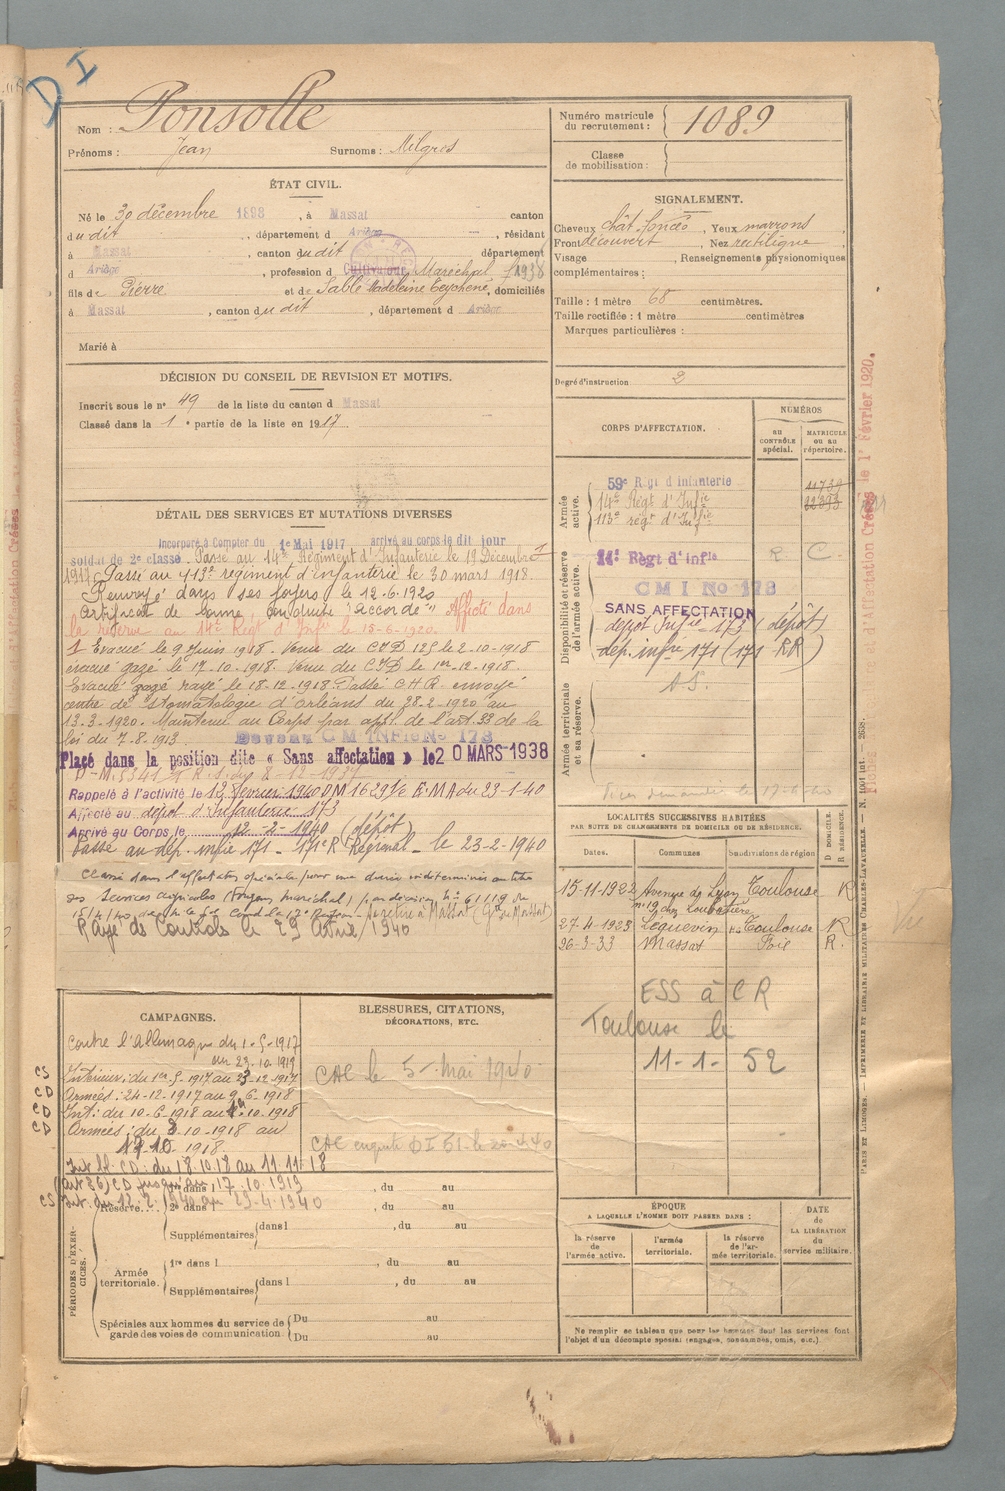 D I
Nom : Ponsolle
Prénoms : Jean Surnoms : Milgres
Numéro matricule du recrutement : 1089
Classe de mobilisation :
ÉTAT CIVIL.
Né le 30 décembre 1898, à Massat canton
du dit, département d Ariège, résidant
à Massat, canton du dit département
d Ariège, profession d Cultivateur Maréchal 1938
fils de Pierre et de Sablé Madeleine, domiciliés
à Massat, canton du dit, département d Ariège
Marié à
SIGNALEMENT.
Cheveux chât. foncés, Yeux marrons
Front découvert, Nez rectiligne
Visage , Renseignements physionomiques
complémentaires :
Taille : 1 mètre 68 centimètres.
Taille rectifiée : 1 mètre centimètres
Marques particulières :
Degré d'instruction 2
DÉCISION DU CONSEIL DE REVISION ET MOTIFS.
Inscrit sous le n° 49 de la liste du canton d Massat
Classé dans la 1e partie de la liste en 1917
DÉTAIL DES SERVICES ET MUTATIONS DIVERSES
Incorporé à Compter du 1e Mai 1917 arrivé au corps le dit jour
soldat de 2e classe. Passé au 14e Régiment d'Infanterie le 19 Décembre
1917. Passé au 113e régiment d'infanterie le 30 mars 1918.
Renvoyé dans ses foyers le 12-6-1920
Certificat de bonne conduite "Accordé" Affecté dans
la réserve au 14e Régt d'Infie le 15-6-1920.
Evacué le 9 Juin 1918. Venu du CID 125 le 2-10-1918
évacué gazé le 17-10-1918. Venu du CID le 1er-12-1918.
Evacué gazé rayé le 18-12-1918 Passé C.H.R. envoyé
centre de stomatologie d'Orléans du 28-2-1920 au
13-3-1920. Maintenu au Corps par appl. de l'art. 33 de la
loi du 7-8-1913. Devenu CM INFIE No 178
Placé dans la position dite « Sans affectation » le 20 MARS 1938
Rappelé à l'activité le 12 février 1940 DM 1629 E.M.A du 23-1-40
Affecté au dépôt d'Infanterie 173
Arrivé au Corps le 12-2-1940 (dépôt)
Passé au dép. infie 171 - 171e R Régional - le 23-2-1940
Classé dans l'affectation spéciale pour une durée indéterminée au titre
des Services agricoles
Rayé des Contrôles le 29 Avril 1940
CORPS D'AFFECTATION.
NUMÉROS
au contrôle spécial.
matricule ou au répertoire.
Armée active.
59e Régt d'Infanterie
14e Régt d'Infie
113e régt d'Infie
Disponibilité et réserve de l'armée active.
14e Régt d'Infie R. C.
CMI No 178
SANS AFFECTATION
dépôt Infie 173 (dépôt)
dép. infie 171 (171 RR)
Armée territoriale et sa réserve.
A.S.
LOCALITÉS SUCCESSIVES HABITÉES
PAR SUITE DE CHANGEMENTS DE DOMICILE OU DE RÉSIDENCE.
Dates. Communes Subdivisions de région D DOMICILE. R RÉSIDENCE.
15-11-1922 Avenue de Lyon Toulouse R
n° 19 chez
27-4-1925 Léguevin Toulouse R
26-3-33 Massat Foix R.
ESS à CR
Toulouse le
11-1-52
CAMPAGNES.
Contre l'Allemagne du 1-5-1917
au 23.10.1919
Intérieur : du 1er-5-1917 au 23-12-1917
Armées : 24-12-1917 au 9-6-1918
Int : du 10-6-1918 au 10-1918
Armées : du 8-10-1918 au
17-10-1918
du 18.10.18 au 11-11-18
CD jusqu'au 17.10.1919
Int. du 12.2.1940 au 29-4-1940
BLESSURES, CITATIONS,
DÉCORATIONS, ETC.
CAC le 5 Mai 1940
PÉRIODES D'EXERCICES.
Réserve
1er dans l , du au
2e dans l , du au
Supplémentaires dans l , du au
Armée territoriale.
1re dans l , du au
Supplémentaires dans l , du au
Spéciales aux hommes du service de garde des voies de communication. Du au
Du au
ÉPOQUE
A LAQUELLE L'HOMME DOIT PASSER DANS :
la réserve de l'armée active.
l'armée territoriale.
la réserve de l'armée territoriale.
DATE de LA LIBÉRATION du service militaire.
Ne remplir ce tableau que pour les hommes dont les services font
l'objet d'un décompte spécial (engagés, condamnés, omis, etc.).
PARIS ET LIMOGES. — IMPRIMERIE ET LIBRAIRIE MILITAIRES CHARLES-LAVAUZELLE.